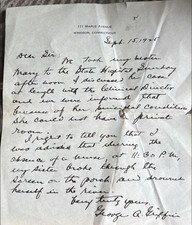 Windsor, Connecticut
Sept. 15, 1925
Dear Sir
We took my sister
Mary to the State Hospital Sunday
afternoon I discussed her case
at length with the Clinical Director
and we were informed that
because of her mental condition
she could not have a private
room.
I regret to tell you that I
was advised that during the
absence of a nurse, at 11:00 P.M.
my sister broke through the
screen on the porch and drowned
herself in the river.
Very truly yours
George A. Griffin